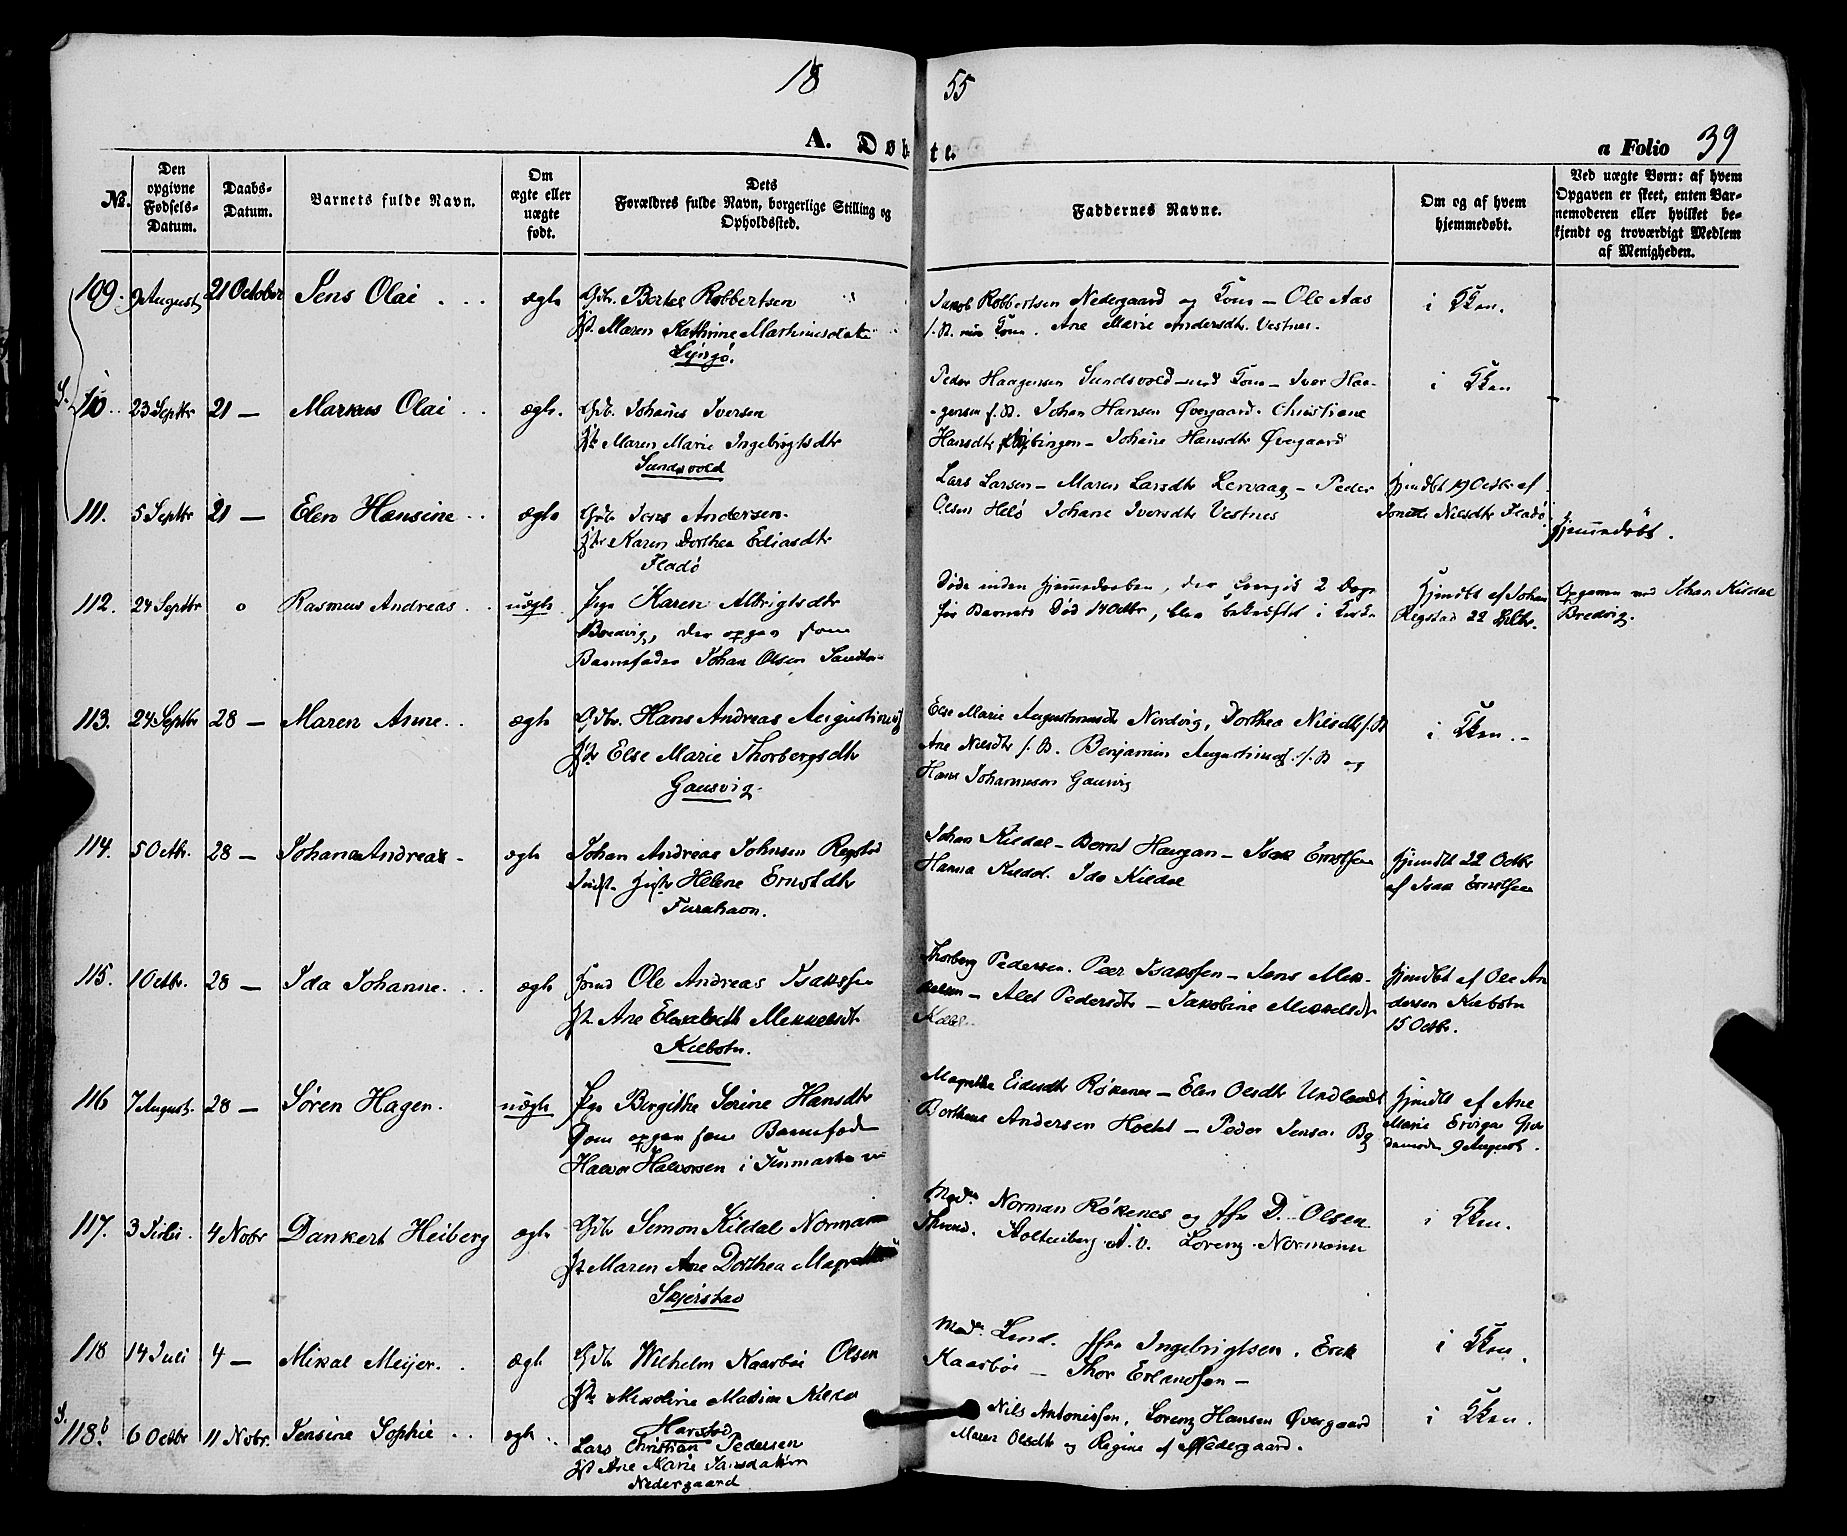 1855
A. Døbte.
a Folio 39
No.
Den opgivne Fødsels-Datum.
Daabs-Datum.
Barnets fulde Navn.
Om ægte eller uægte født.
Dets Forældres fulde Navn, borgerlige Stilling og Opholdssted.
Faddernes Navne.
Om og af hvem hjemmedøbt.
Ved uægte Børn: af hvem Opgaven er skeet, enten Barnemoderen eller hvilket bekjendt og troværdigt Medlem af Menigheden.
109. 9 August 21 October Jens Olai ægte Gbr. Bertes Robbertsen
Maren Kathrine Mathiasdatter
Jakob Robbertsen Nedergaard og Kone – Ole Aas
Ane Marie Andersdtr Vestnes.
i Kken.
110. 23 Septbr 21 – Markus Olai ægte. Gbr. Johanes Iversen
Maren Marie Ingebrigtsdtr
Sundsvold
Peder Haagensen Sundsvold – Kone – Iver Haa-
gensen f. St. Johan Hansen Øvergaard. Christiane
Hansdtr – Johane Hansdtr Øvergaard
i Kken
111. 5 Septbr 21 – Elen Hansine ægte Gbr. Jens Andersen
Karen Dorthea Eliasdtr
Fladø
Lars Larsen – Maren Larsdtr Lervaag – Peder
Olsen Helø Johane Iversdtr Vestnes
Hjmdbt 19 Octbr af
Nilsdtr Fladø
hjemmedøbt.
112. 24 Septbr o Rasmus Andreas uægte Pige Karen Albrigtsdtr
Bredvig, der opgav som
Barnefader Johan Olsen
Døde inden Hjemmedaaben, der foregik 2 Dage
før Barnets Død 24 Octbr, blev bekræftet i Kirke
Hjmdbt af Johan
Regstad 22 Octbr.
Opgaven ved Johan Kildal
Bredvig.
113. 24 Septbr 28 – Maren Anne ægte Gbr. Hans Andreas Augustinus
Else Marie Thorbergsdtr
Gausvig
Else Marie Augustinusdtr Nordvig, Dorthea Nilsdtr f. St
Ane Nilsdtr f. St. Benjamin Augustinus. f. St og
Hans Johannesen Gausvig
i Kken. –
114. 5 Octbr. 28 – Johan Andreas ægte Johan Andreas Johnsen Regstad
Helene Ernstdtr
Furehavn.
Johan Kildal – Bernt Haugan – Isak Ernstsen
Hanna Kildal. Ida Kildal
hjmdbt 22 Octbr
af Isak Ernstsen
115. 1 Octbr. 28 – Ida Johanne ægte Ole Andreas Isaksen
Ane Elisabeth Mikkelsdtr
Kilbotn.
Thorberg Pedersen. Peer Isaksen – Jens Mik-
kelsen – Alet Pedersdtr – Jakobine Mikkelsdtr
hjmdbt af Ole An
dersen Kilbotn
15 Octbr.
116 7 August. 28 – Søren Hagen. uægte Pige Birgithe Serine Hansdtr
som opgav som Barnefader
Halvor Halvorsen i Finmarken
Magrethe Eidesdtr Røkenes – Elen Olsdtr Undlandt
Andersen Holtet – Peder Jensen
hjmdbt af Ane
Marie
9 August.
117. 3 Juli. 4 Nobr Dankert Heiberg ægte Gbr Simon Kildal Normann
Maren Ane Dorthea
Skjerstad
Mad. Norman Røkenes og Jfr D. Olsen
Holtenberg. Lorenz Normann
i Kken.
118 14 Juli 4 – Mikal Meijer ægte Gbr Wilhelm Kaarbøe Olsen
Nikoline Madine Kildal
Harstad
Mad. Lund. Jfr Ingebrigtsen, Erik
Kaarbøe – Thor Erlandsen –
i Kken.
118.b 6 Octbr 11 Nobr. Jensine Sophie ægte Lars Christian Pedersen
Ane Marie
Nedergaard
Nils Antonissen, Lorenz Hansen Øvergaard
Maren Olsdtr og Regine af Nedergaard.
i Kken.